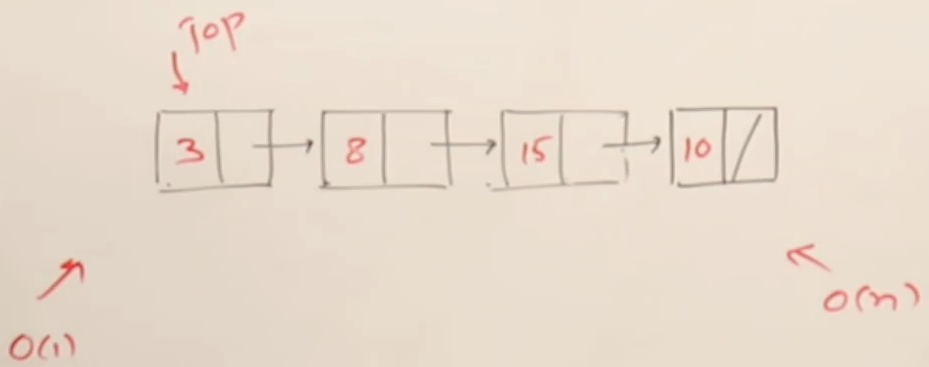 Top
3 8 15 10
O(n)
O(1)